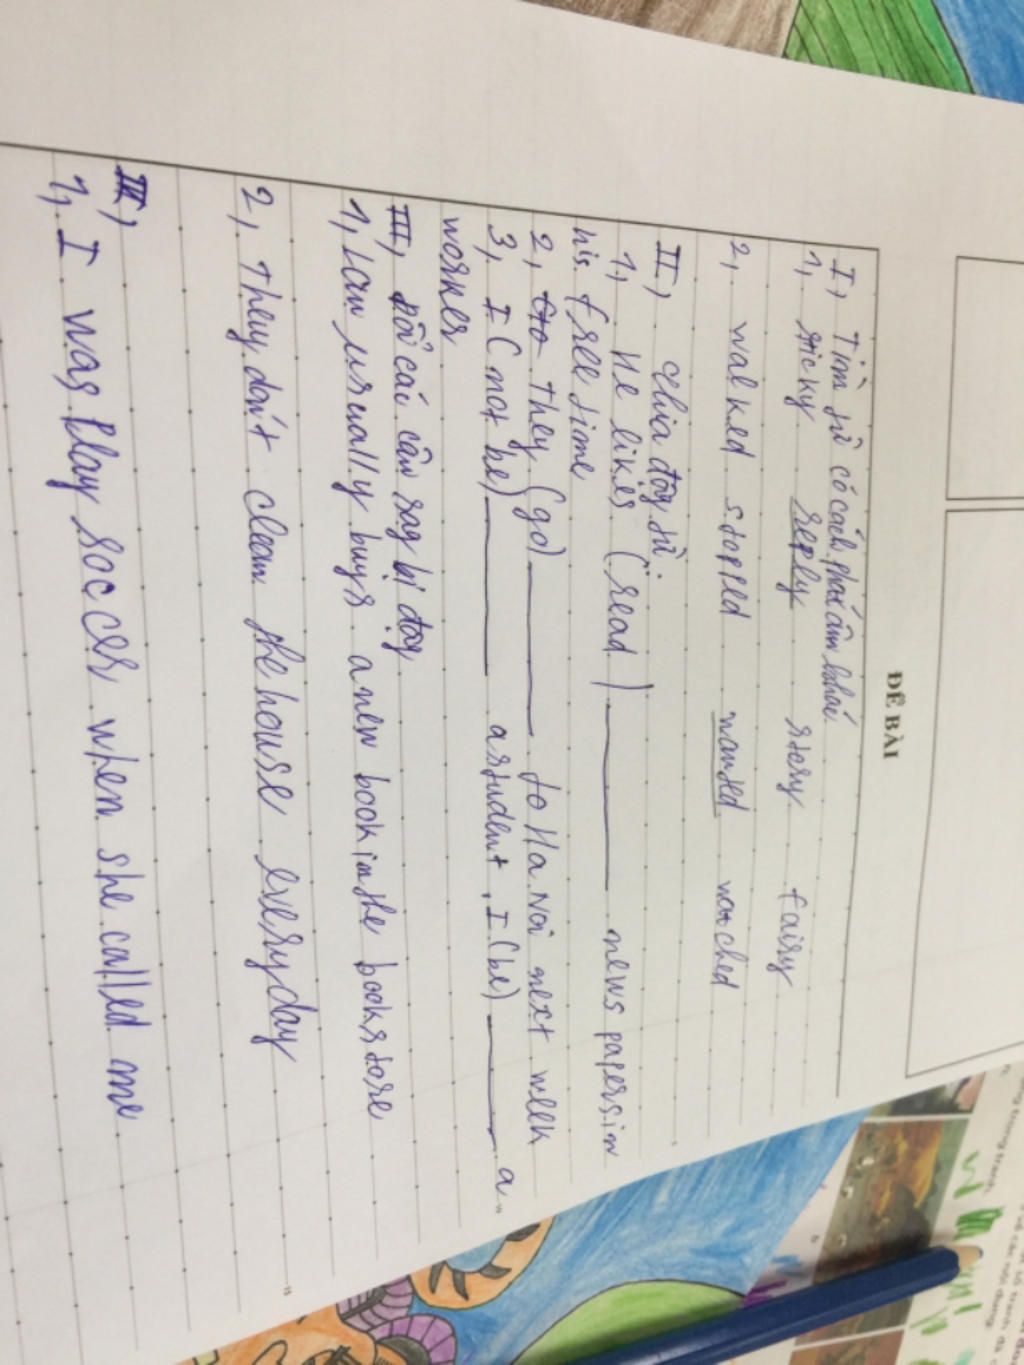 ĐỀ BÀI
I, Tìm từ có cách phát âm khác
1, sticky reply story fairy
2, walked stopped wanted watched
II, chia động từ.
1, He likes (read) ______ news papers in
his free time
2, They (go) ______ to Ha Noi next week
3, I (not be) ______ a student, I (be) ______ a
worker
III, đổi các câu sag bị động
1, Lan usually buys a new book in the bookstore
2, They don't clean the house everyday
1, I was play soccer when she called me